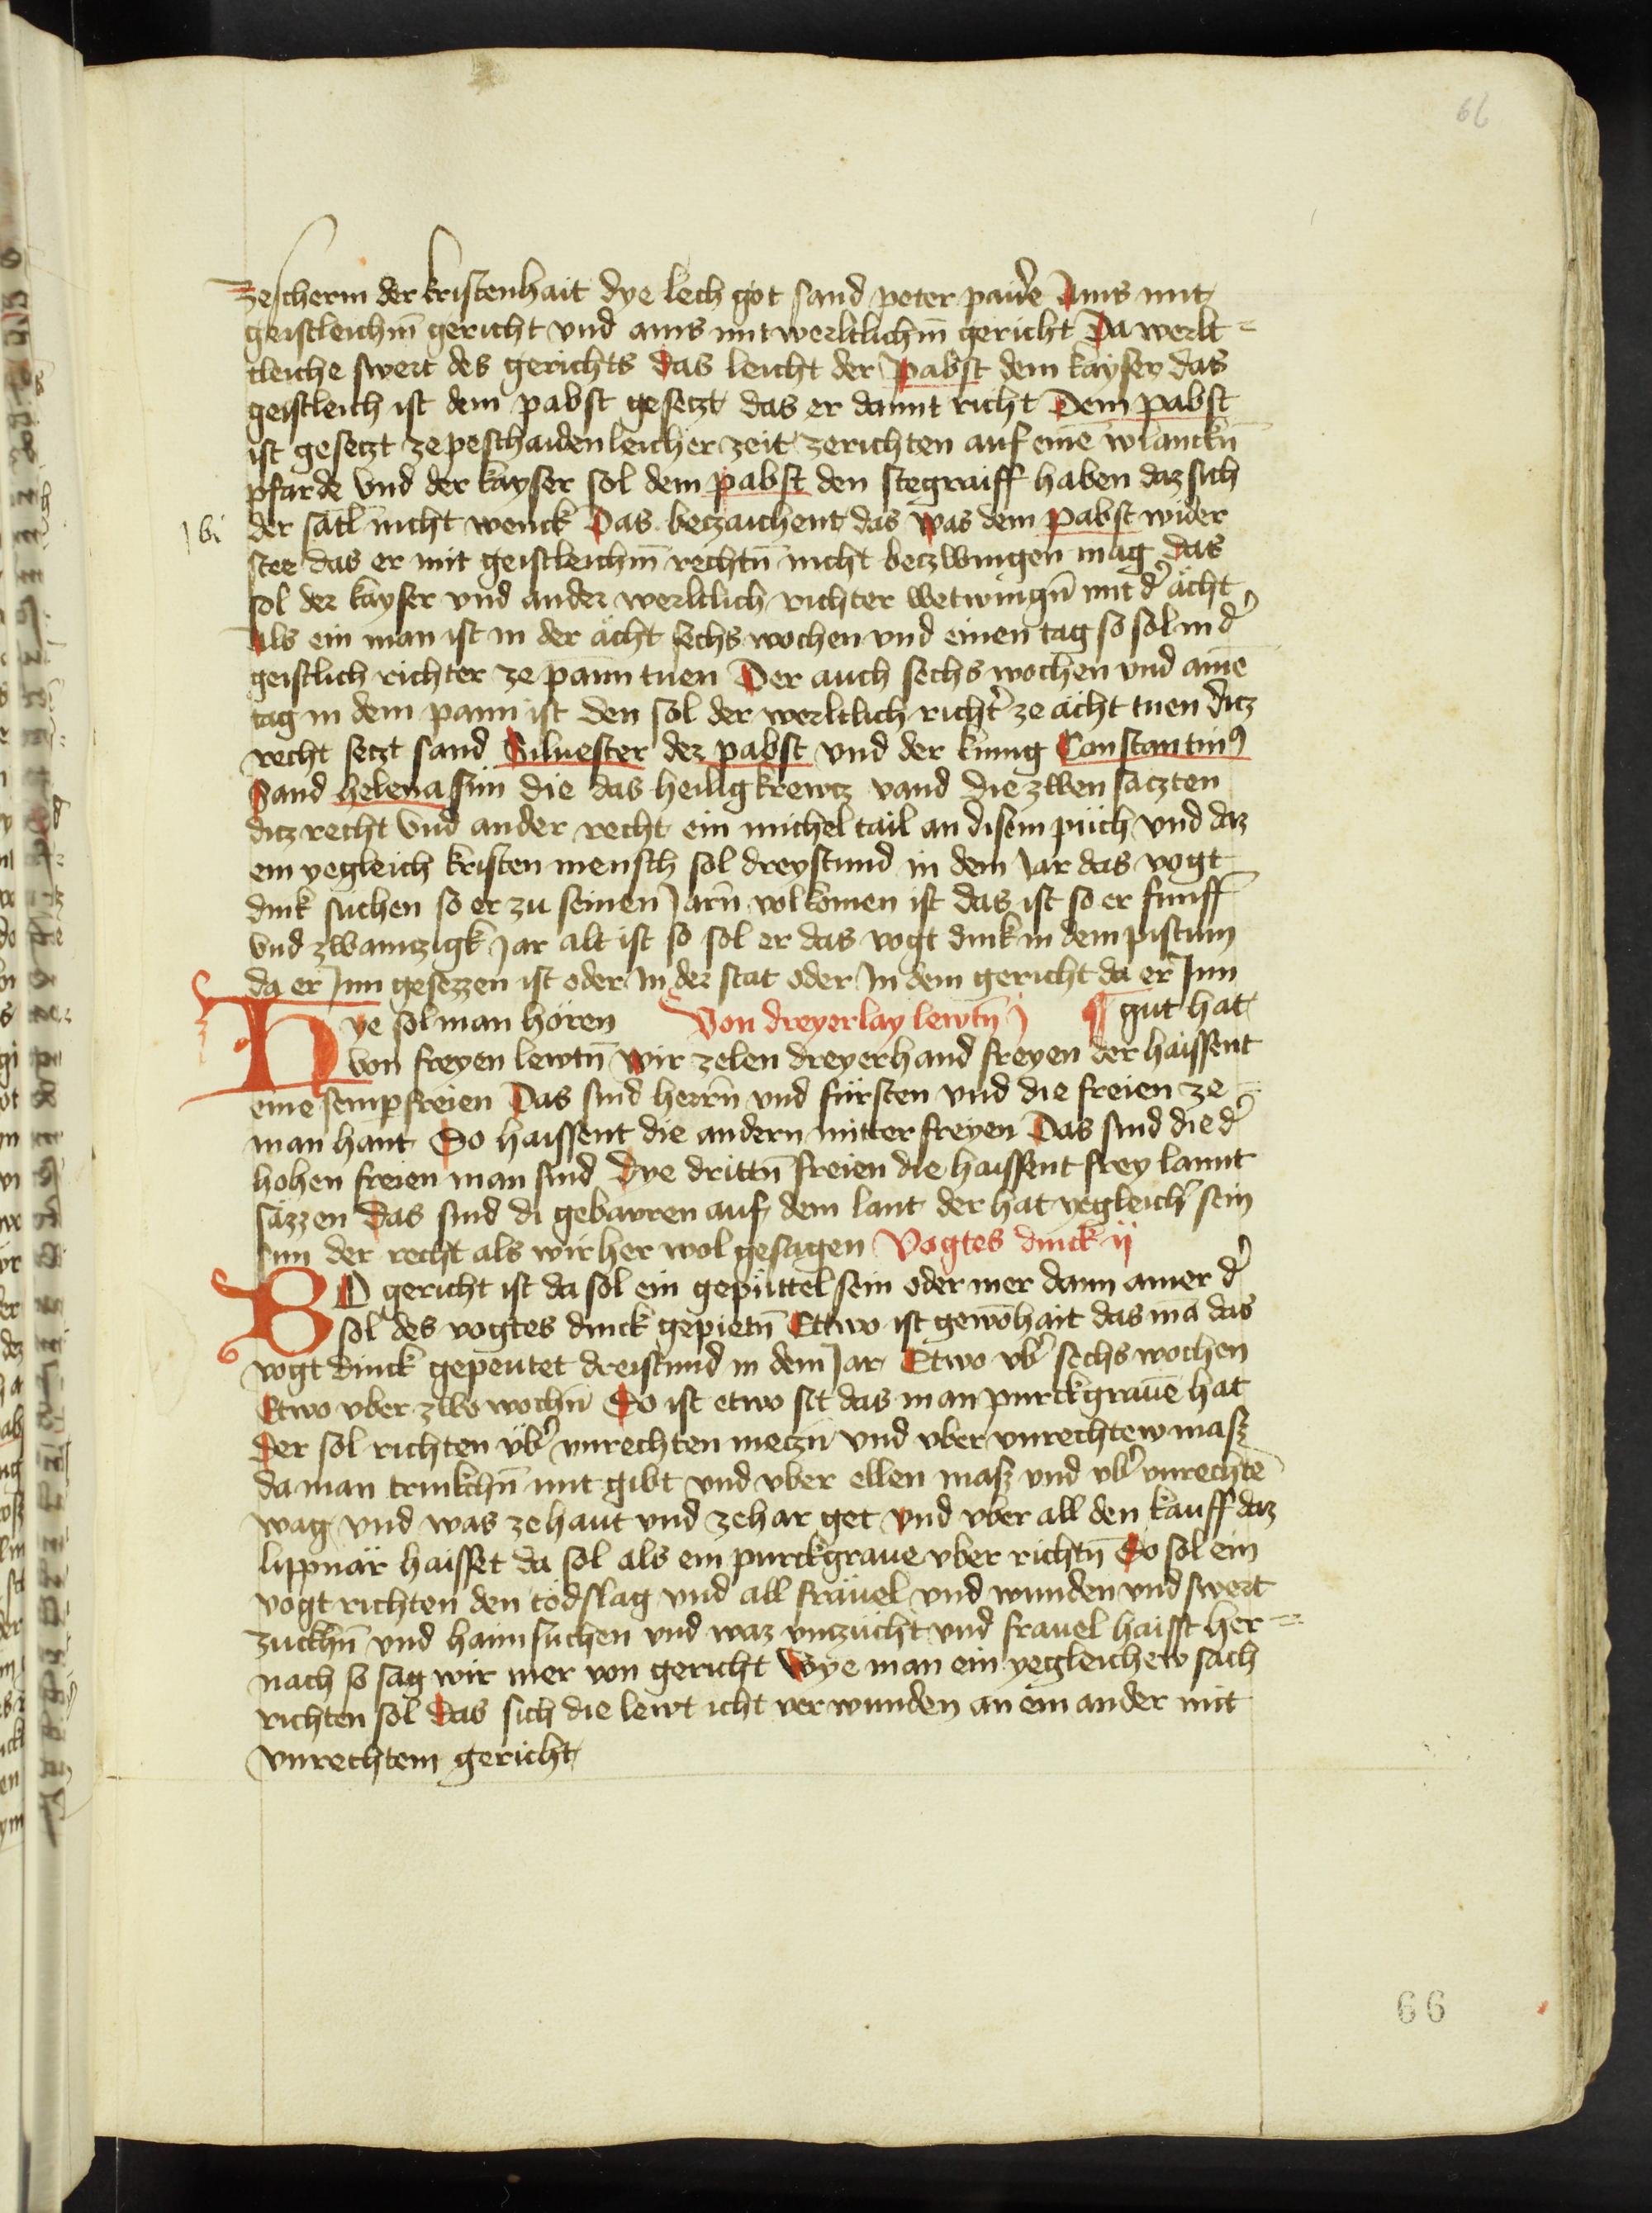 66
ze scherm der kristenhait dye lech got sand peter paide Ains mit
geistleichm̄ gericht vnd ains mit werltlichm̄ gericht Da werlt=
tleiche swert des gerichts das leicht der Pabst dem kayser das
geistleich ist dem pabst gesetzt das er damit richt Dem pabst
ist gesetzt ze peschaidenleicher zeit zerichten auf einē wlanckn̄
pfärde vnd der kayser sol dem pabst den stegraiff haben daz sich
der satl nicht wenck Das beczaichent das was dem pabst wider
stee das er mit geistleichm̄ rechtn̄ nicht beczwingen mag das
sol der kayser vnd ander werltlich richter wetwingn̄ mit d̾ ächt
Als ein man ist in der ächt sechs wochen vnd einen tag so sol in d̾
geistlich richter ze pann tuen Der auch sechs wochen vnd ainē
tag in dem pann ist den sol der werltlich richt̾ ze ächt tuen ditz
recht setzt sand Siluester der pabst vnd der kunig Constantinꝰ
Sand helena sun die das heilig krewtz vand die zwen saczten
ditz recht vnd ander recht ein michel tail an disem püch vnd daz
ein yegleich kristen mensch sol dreystund in dem Jar das vogt
dink suchen so er zu seinen Jarn̄ volkomen ist das ist so er funff
vnd zwaintzigk Jar alt ist so sol er das vogt dink in dem pistum
da er Jnn gesezzen ist oder in der stat oder in dem gericht da er Jnn
¶ gut hat
Hye sol man hören Von dreyerlay lewtn̄ J
von freyen lewtn̄ wir zelen dreyerhand freyen der haissent
eine sempfreien Das sind herrn̄ vnd fürsten vnd die freien ze=
man hant So haissent die andern mitter freyen Das sind die d̾
hohen freien man sind Dye drittn̄ freien die haissent frey lannt
säzzen Das sind di gebawren auf dem lant der hat yegleich̾ sein
sun der recht als wir her wol gesagen Vogtes dinck ij
BO gericht ist da sol ein gepüttel sein oder mer dann ainer d̾
sol des vogtes dinck gepietn̄ Ettwo ist gewōhait das mā das
vogt dinck gepeutet dreistund in dem Jar Etwo vb̾ sechs wochen
Etwo vber zwo wochn̄ So ist etwo sit das man purckgrauē hat
Der sol richten üb̾ vnrechten meczn̄ vnd vber vnrechtew masz
da man trinkchn̄ mit gibt vnd vber ellen masz vnd vb̾ vnrechtē
wag vnd was ze haut vnd ze har get vnd vber all den kauff daz
lippnär haisset da sol als ein purckgraue vber richtn̄ So sol ein
vogt richten den todslag vnd all fräuel vnd wunden vnd swert
zuckhn̄ vnd haimsuchen vnd waz vnzücht vnd frauel haisst her=
nach so sag wir mer von gericht Wye man ein yegleichew sach
richten sol Das sich die lewt icht verwunden an ein ander mit
vnrechtem gericht
66